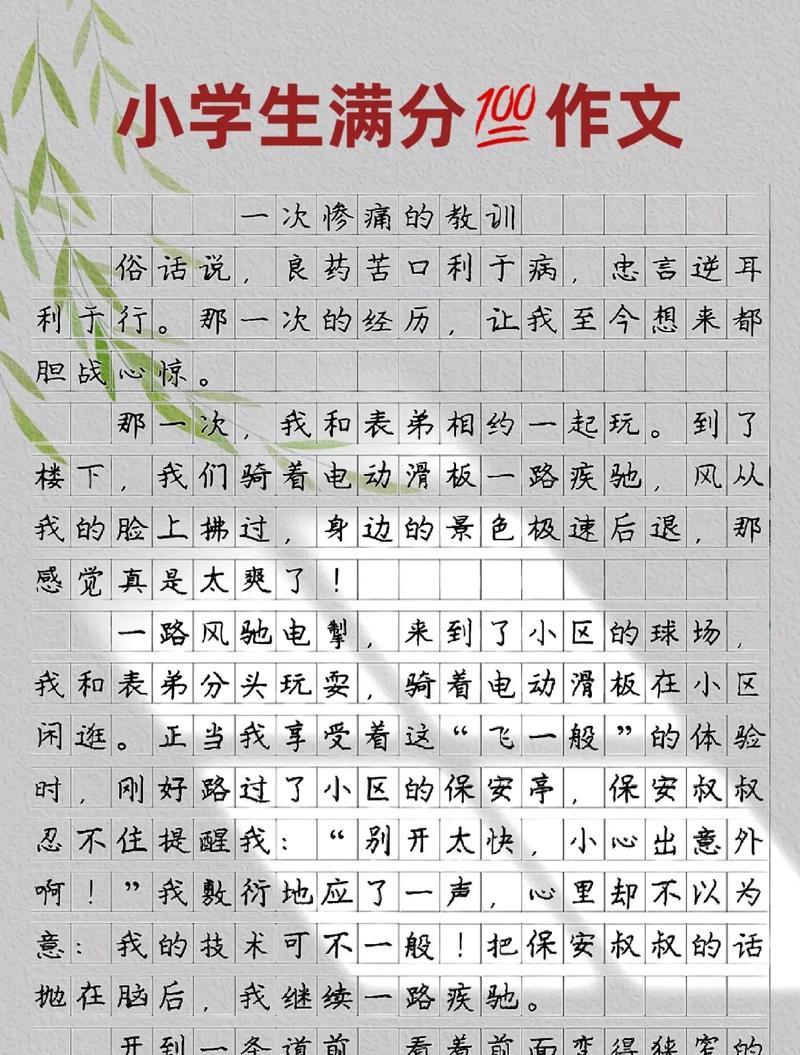 小学生满分💯作文
一次惨痛的教训
俗话说，良药苦口利于病，忠言逆耳
利于行。那一次的经历，让我至今想来都
胆战心惊。
那一次，我和表弟相约一起玩。到了
楼下，我们骑着电动滑板一路疾驰，风从
我的脸上拂过，身边的景色极速后退，那
感觉真是太爽了！
一路风驰电掣，来到了小区的球场，
我和表弟分头玩耍，骑着电动滑板在小区
闲逛。正当我享受着这“飞一般”的体验
时，刚好路过了小区的保安亭，保安叔叔
忍不住提醒我：“别开太快，小心出意外
啊！”我敷衍地应了一声，心里却不以为
意：我的技术可不一般！把保安叔叔的话
抛在脑后，我继续一路疾驰。
开到一条道前，看着前面变得狭窄的